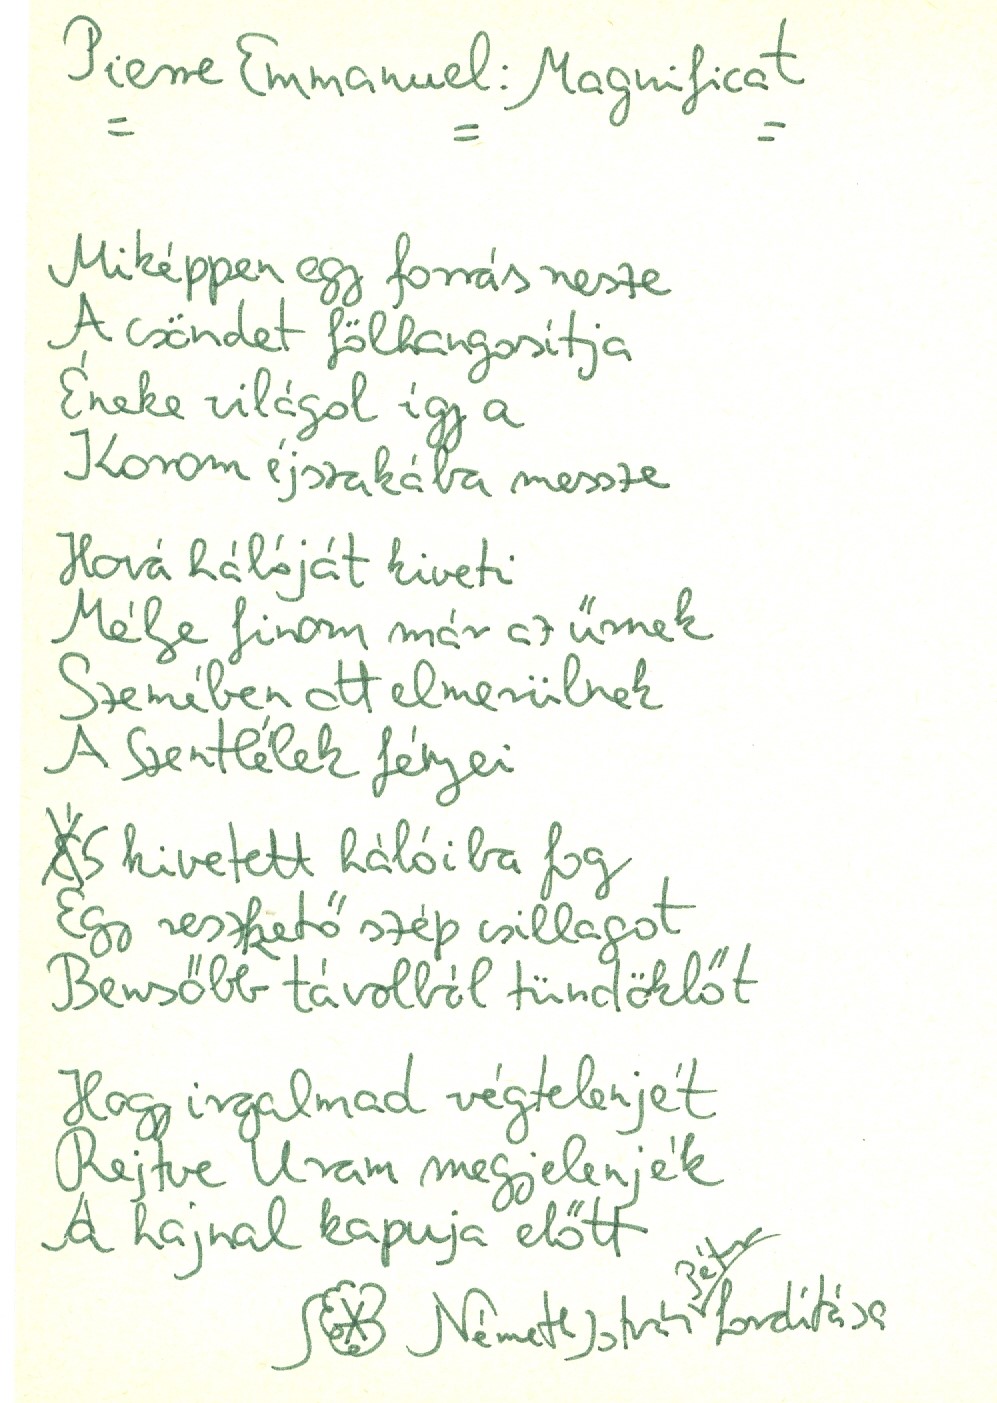 Pierre Emmanuel: Magnificat
Miképpen egy forrás nesze
A csöndet fölhangosítja
Éneke világol így a
Korom éjszakába messze
Hová hálóját kiveti
Mélye finom már az űrnek
Szemében ott elmerülnek
A Szentlélek fényei
És kivetett hálóiba fog
Egy reszkető szép csillagot
Bensőbb távolból tündöklőt
Hogy irgalmad végtelenjét
Rejtve Uram megjelenjék
A hajnal kapuja előtt
Németh István Péter fordítása